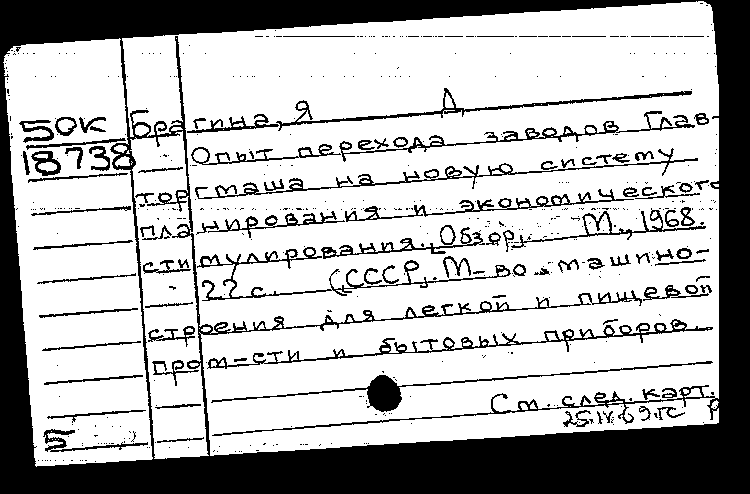 50К Брагина, Я Д.
18738 Опыт перехода заводов Глав-
торгмаша на новую систему
планирования и экономического
стимулирования. Обзор. М., 1968.
22 с. (СССР. М-во машино-
строения для легкой и пищевой
пром-сти и бытовых приборов.
См. след. карт.
Б